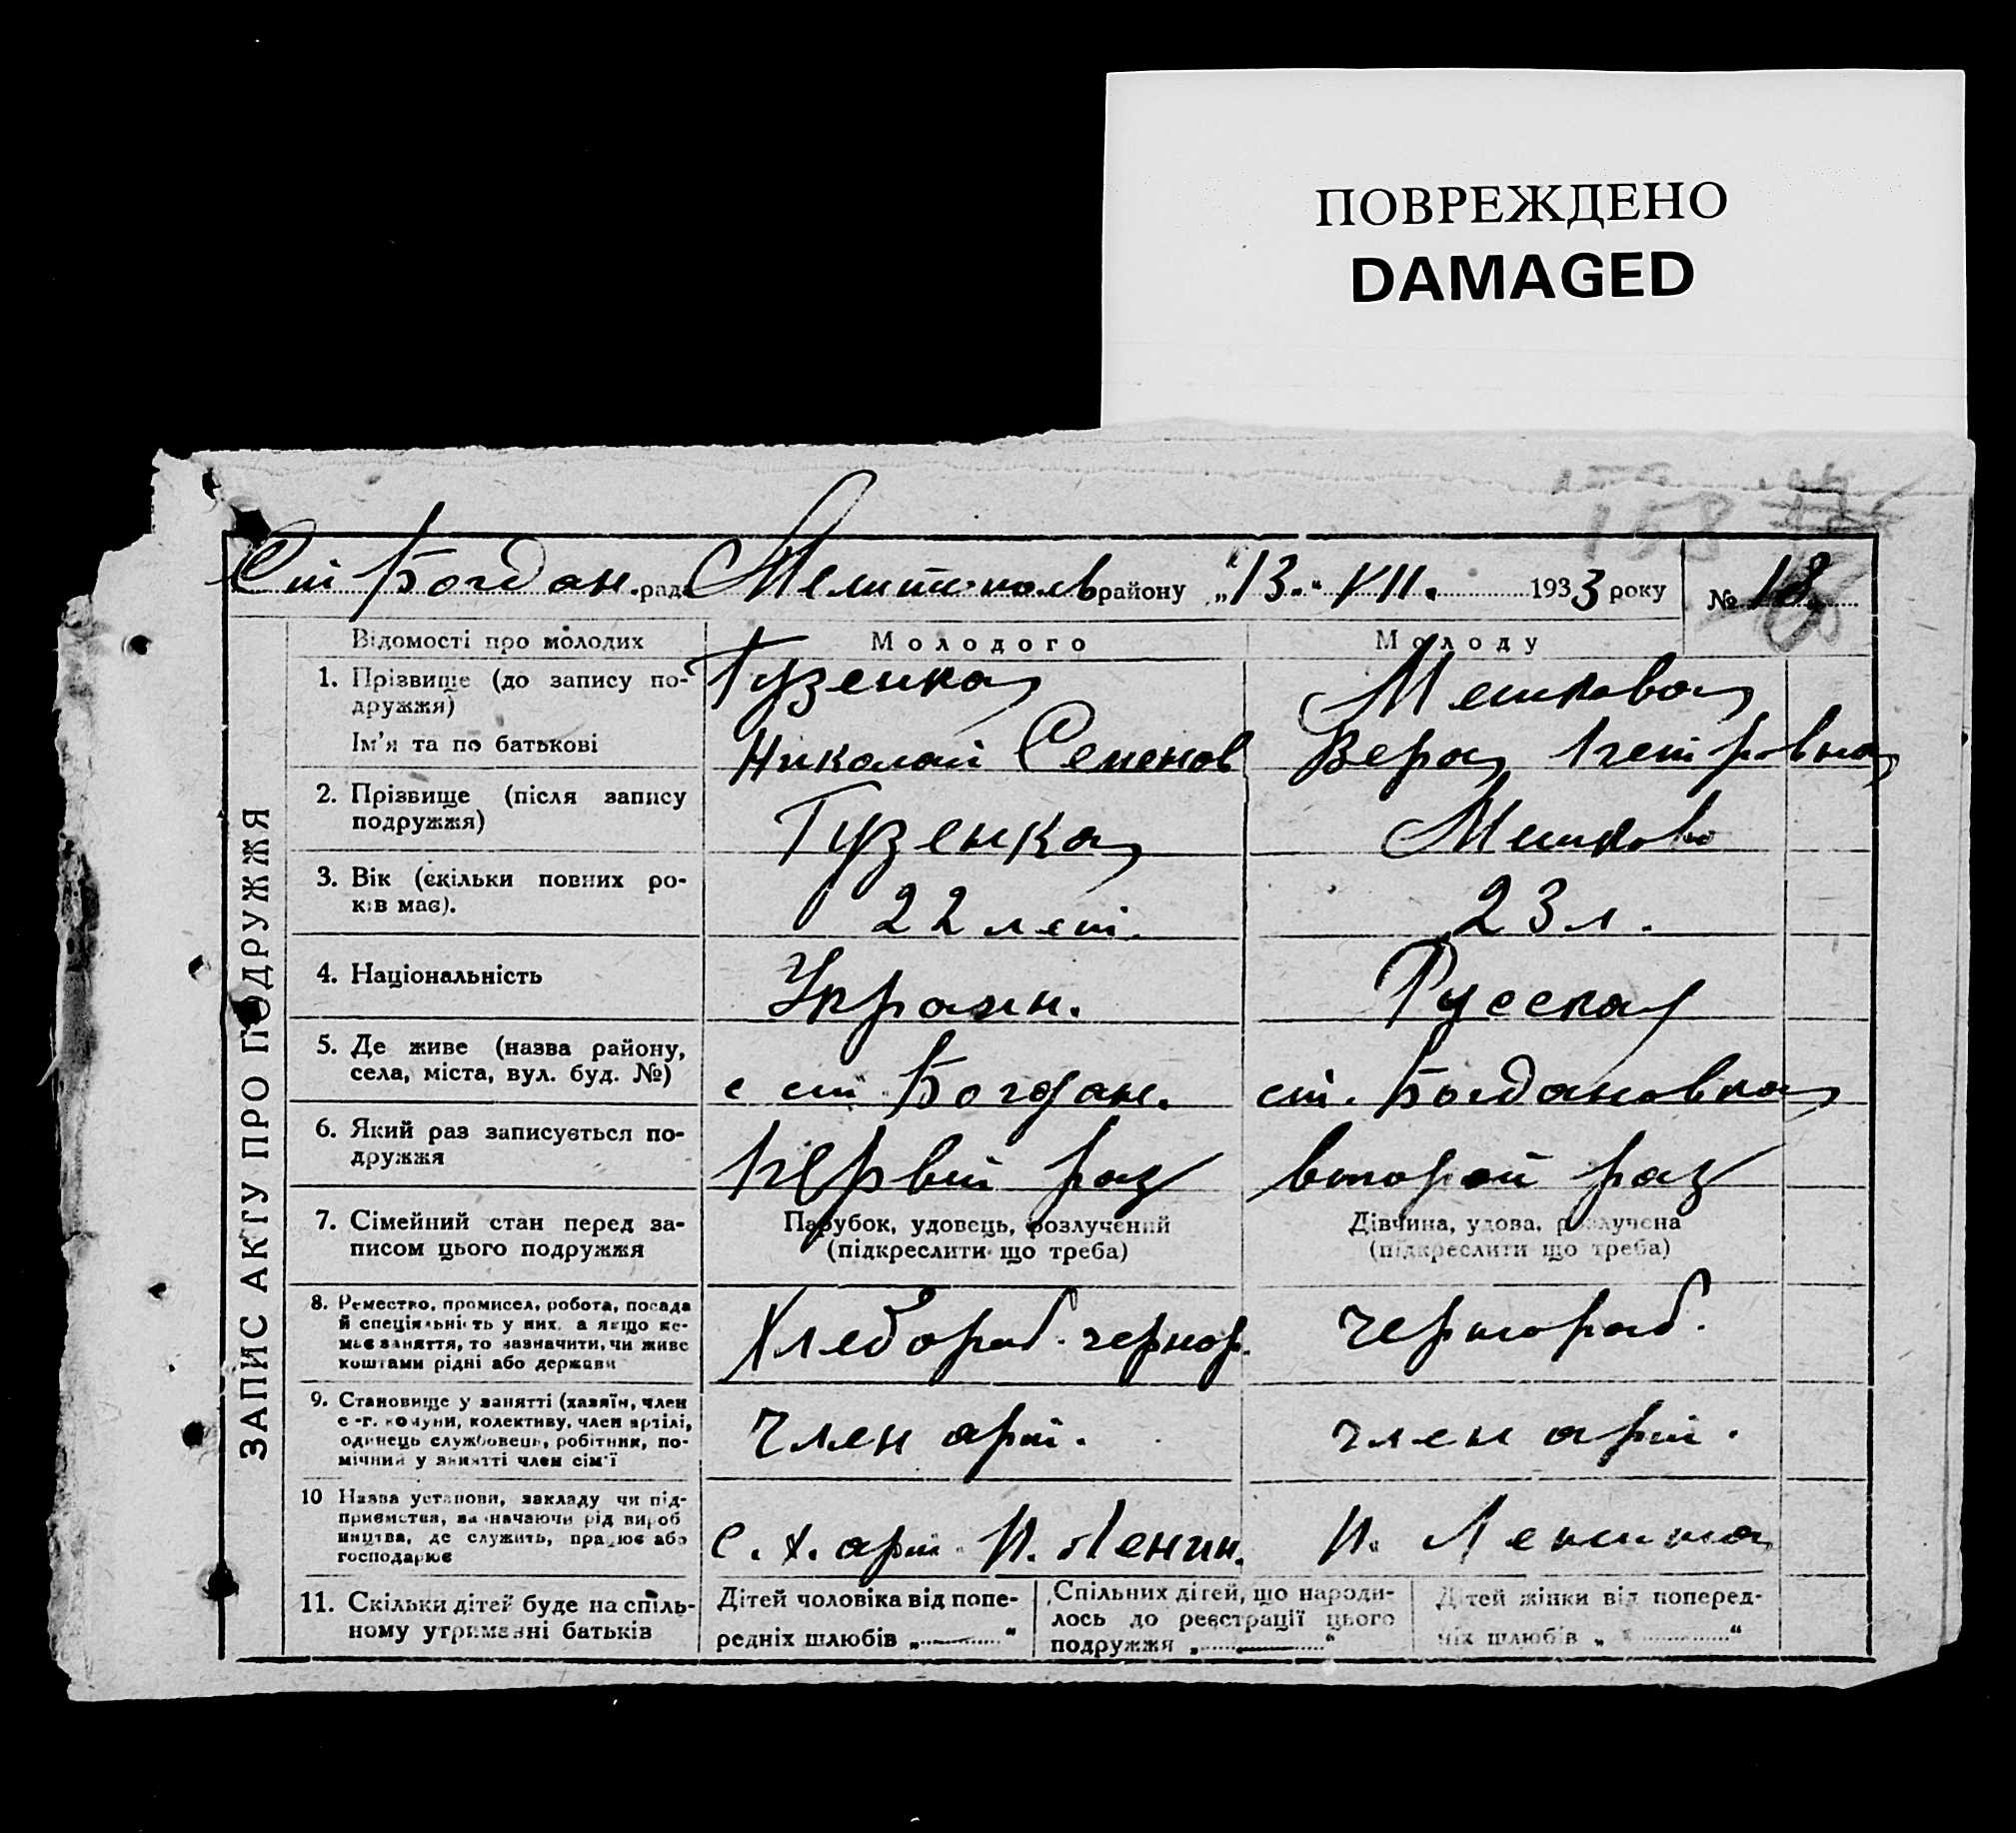 ПОВРЕЖДЕНО
DAMAGED
158
Ст Богдан. рад. Мелитополь району „13.“ VII. 1933 року № 18
ЗАПИС АКТУ ПРО ПОДРУЖЖЯ
Відомості про молодих Молодого Молоду
1. Прізвище (до запису по-
дружжя)
Гузенка Мешкова
Ім'я та по батькові Николай Семенов Вера Петровна
2. Прізвище (після запису
подружжя)
Гузенка Мешкова
3. Вік (скільки повних ро-
ків має).
22 лет. 23 л.
4. Національність Украин. Русская
5. Де живе (назва району,
села, міста, вул. буд. №)
с ст Богдан. ст. Богдановка
6. Який раз записується по-
дружжя
Первий раз второй раз
7. Сімейний стан перед за-
писом цього подружжя
Парубок, удовець, розлучений
(підкреслити що треба)
Дівчина, удова, розлучена
(підкреслити що треба)
8. Ремество, промисел, робота, посада
й спеціяльність у них, а якщо не-
має заняття, то зазначити, чи живе
коштами рідні або держави
Хлебораб. чернор. чернораб.
9. Становище у занятті (хазяїн, член
с-г. комуни, колективу, член артілі,
одинець службовець, робітник, по-
мічний у занятті член сім'ї
Член арт. член арт.
10 Назва установи, закладу чи під-
приємства, зазначаючи рід вироб
ництва, де служить, працює або
господарює
С. х. арт. И. Ленин. И. Ленина
11. Скільки дітей буде на спіль-
ному утриманні батьків
Дітей чоловіка від попе-
редніх шлюбів „ — “
Спільних дітей, що народи-
лось до реєстрації цього
подружжя „ — “
Дітей жінки від поперед-
ніх шлюбів „ “